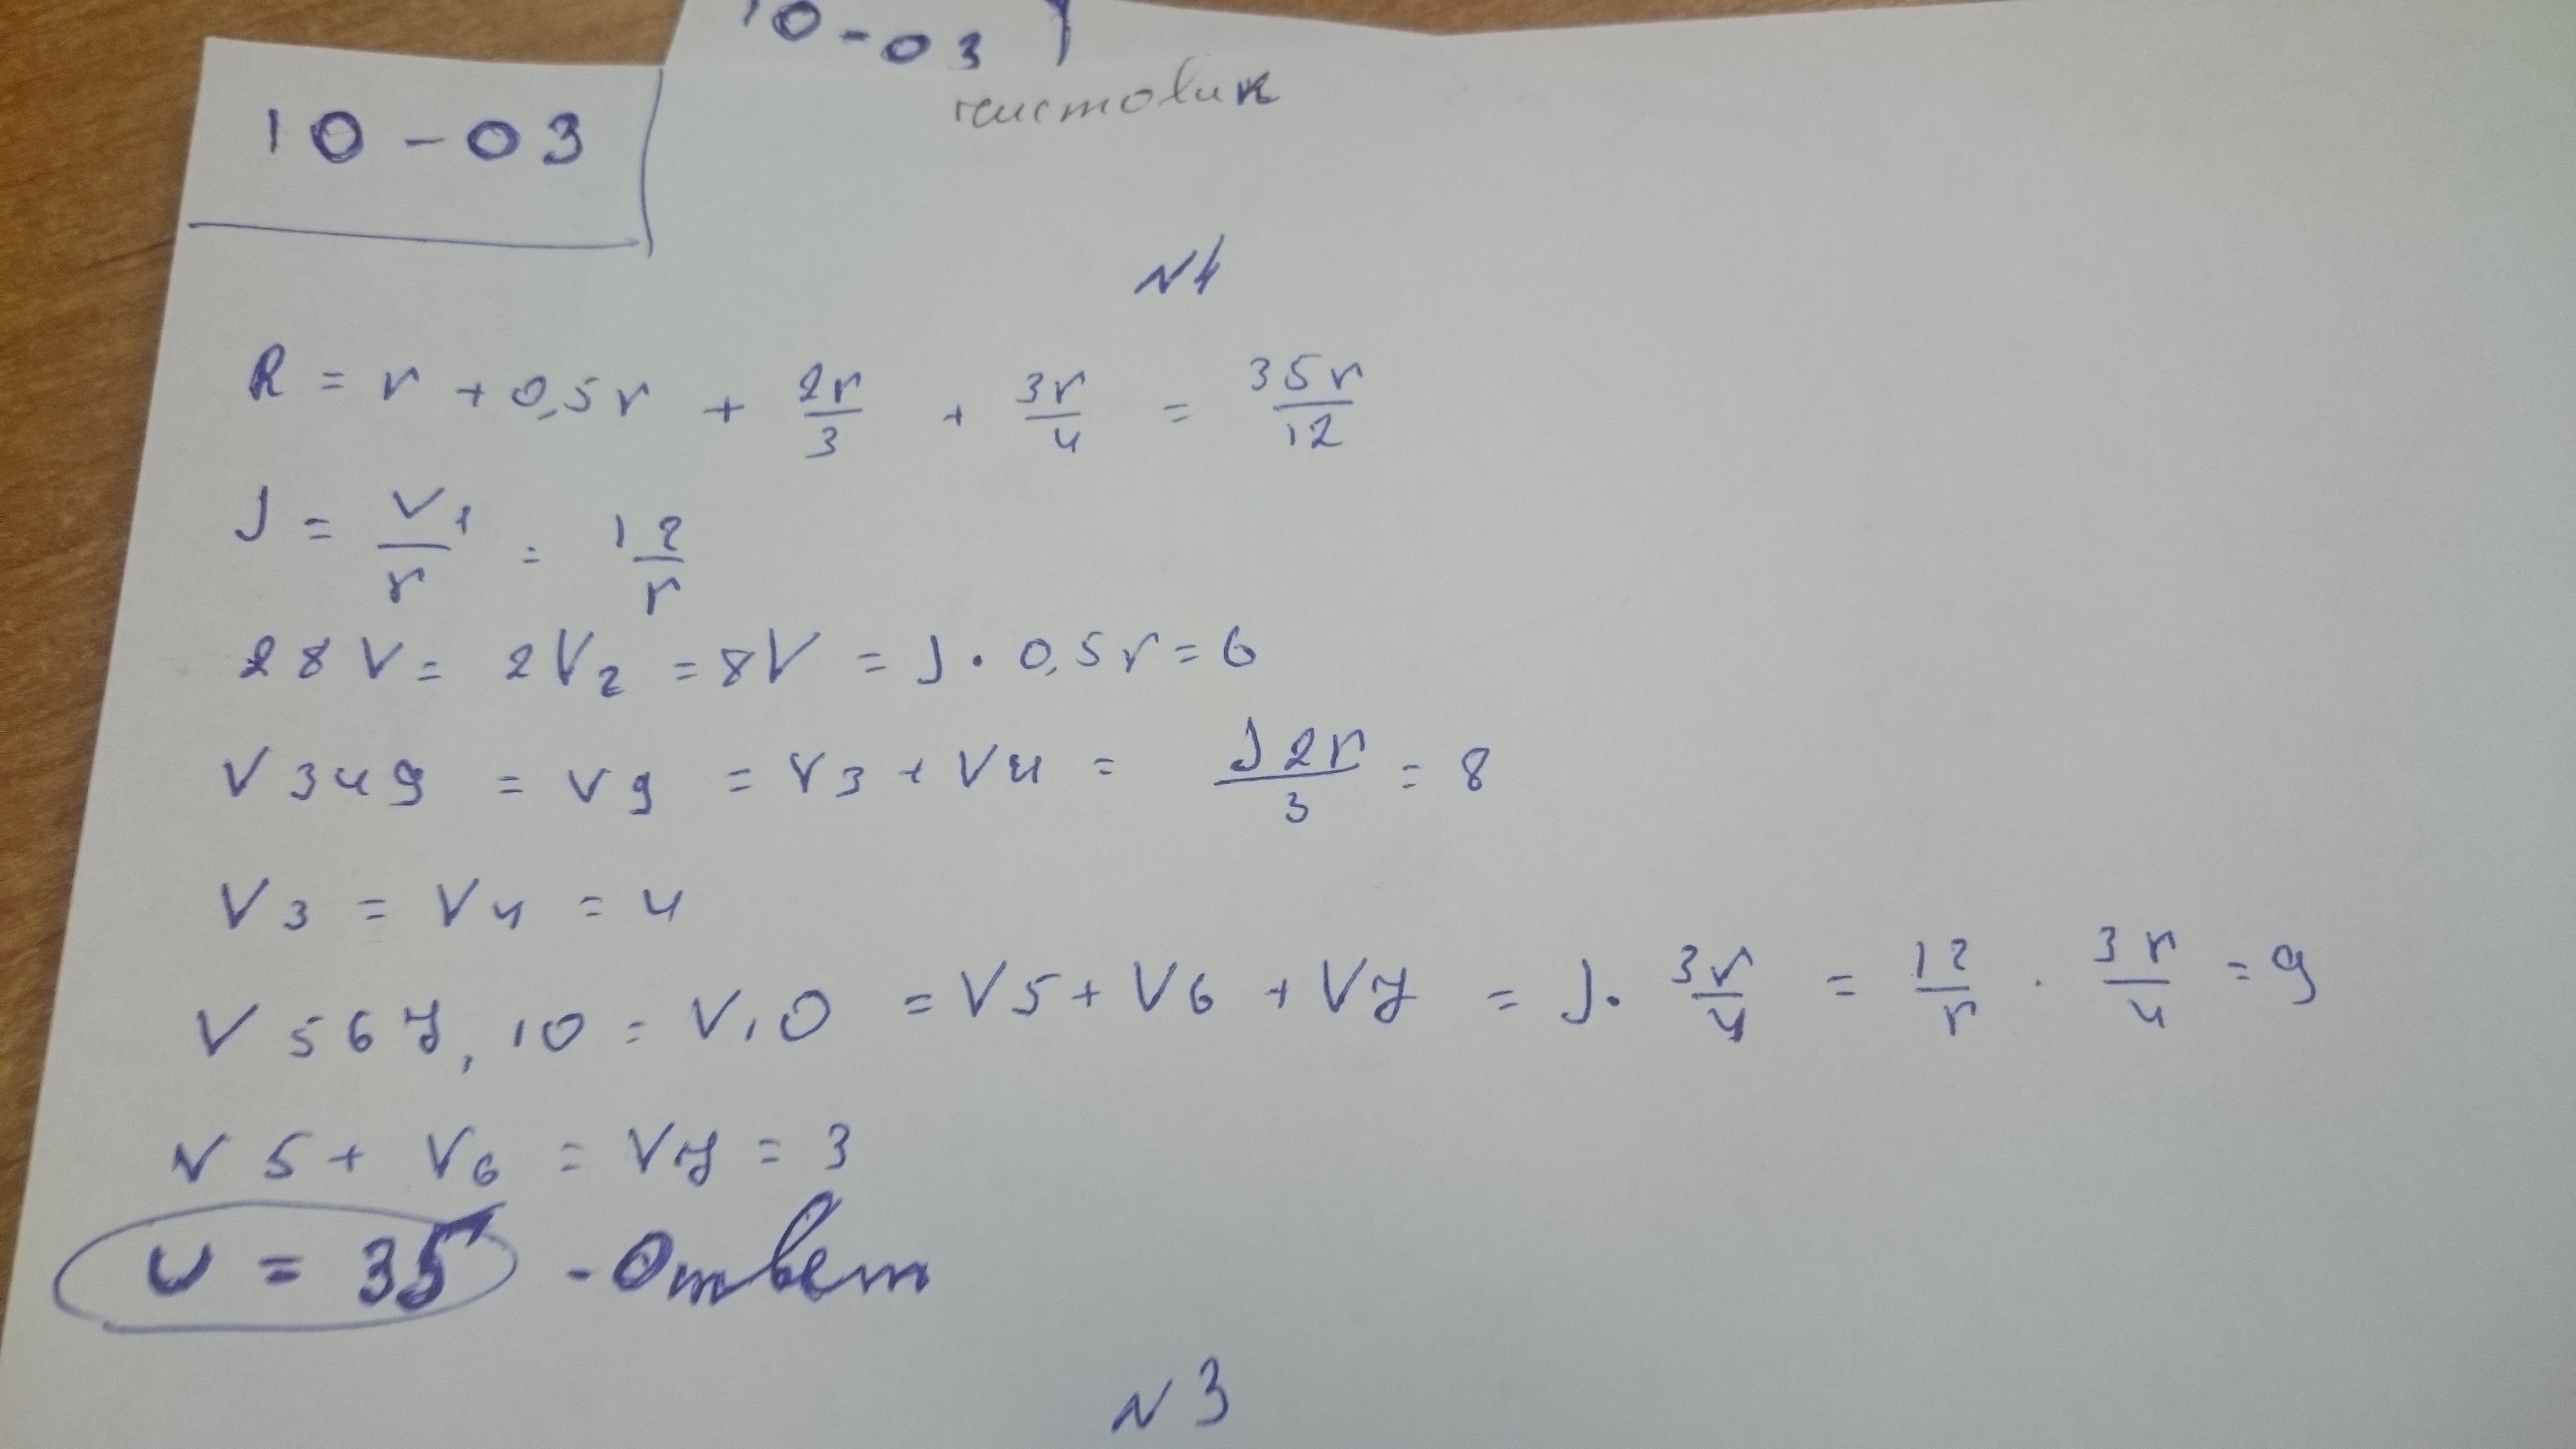 10-03
чистовик
10-03
N1
R = r + 0,5r + 2r/3 + 3r/4 = 35r/12
J = V1/r = 12/r
28V = 2V2 = 8V = J · 0,5r = 6
V349 = V9 = V3 + V4 = J2r/3 = 8
V3 = V4 = 4
V567,10 = V10 = V5 + V6 + V7 = J · 3r/4 = 12/r · 3r/4 = 9
V5 + V6 = V7 = 3
U = 35 - Ответ
N3